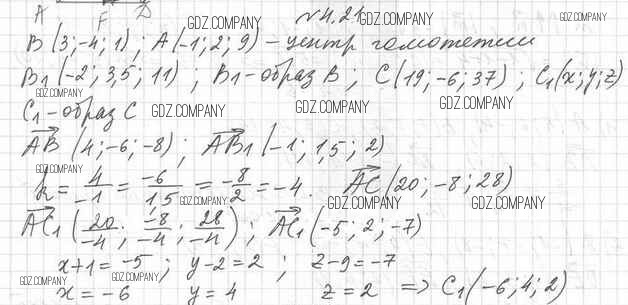 A F D
№4.21 GDZ.COMPANY GDZ.COMPANY GDZ.COMPANY
B(3;-4;1); A(-1;2;9) – центр гомотетии
B₁(-2;3,5;11); B₁-образ B; C(19;-6;37); C₁(x;y;z)
GDZ.COMPANY GDZ.COMPANY GDZ.COMPANY GDZ.COMPANY
C₁-образ C
AB (4;-6;-8); AB₁ (-1;1,5;2)
GDZ.COMPANY
k = 4/-1 = -6/1,5 = -8/2 = -4. AC (20;-8;28)
GDZ.COMPANY GDZ.COMPANY GDZ.COMPANY
AC₁ (20/-4; -8/-4; 28/-4); AC₁ (-5;2;-7)
x+1=-5; y-2=2; z-9=-7
GDZ.COMPANY GDZ.COMPANY
x=-6 y=4 z=2 => C₁(-6;4;2)